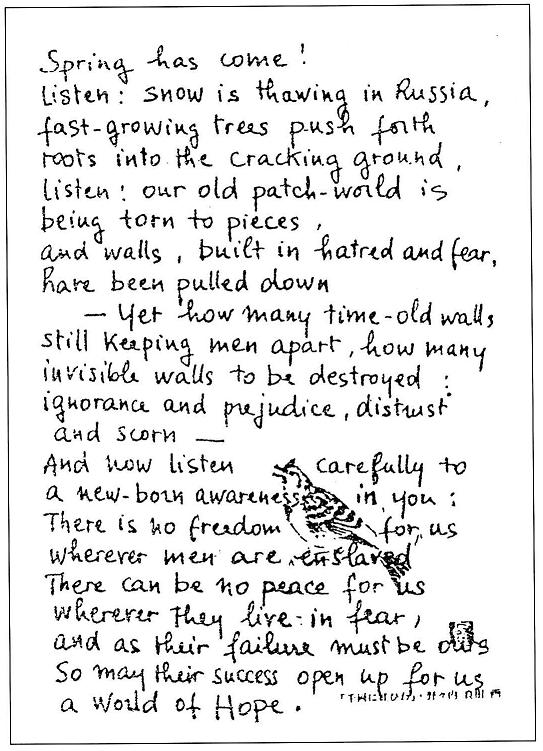 Spring has come!
listen: snow is thawing in Russia,
fast-growing trees push forth
roots into the cracking ground,
listen: our old patch-world is
being torn to pieces,
and walls, built in hatred and fear,
have been pulled down
— Yet how many time-old walls
still keeping men apart, how many
invisible walls to be destroyed:
ignorance and prejudice, distrust
and scorn —
And now listen carefully to
a new-born awareness in you:
There is no freedom for us
wherever men are enslaved
There can be no peace for us
wherever they live in fear,
and as their failure must be ours
So may their success open up for us
a World of Hope.